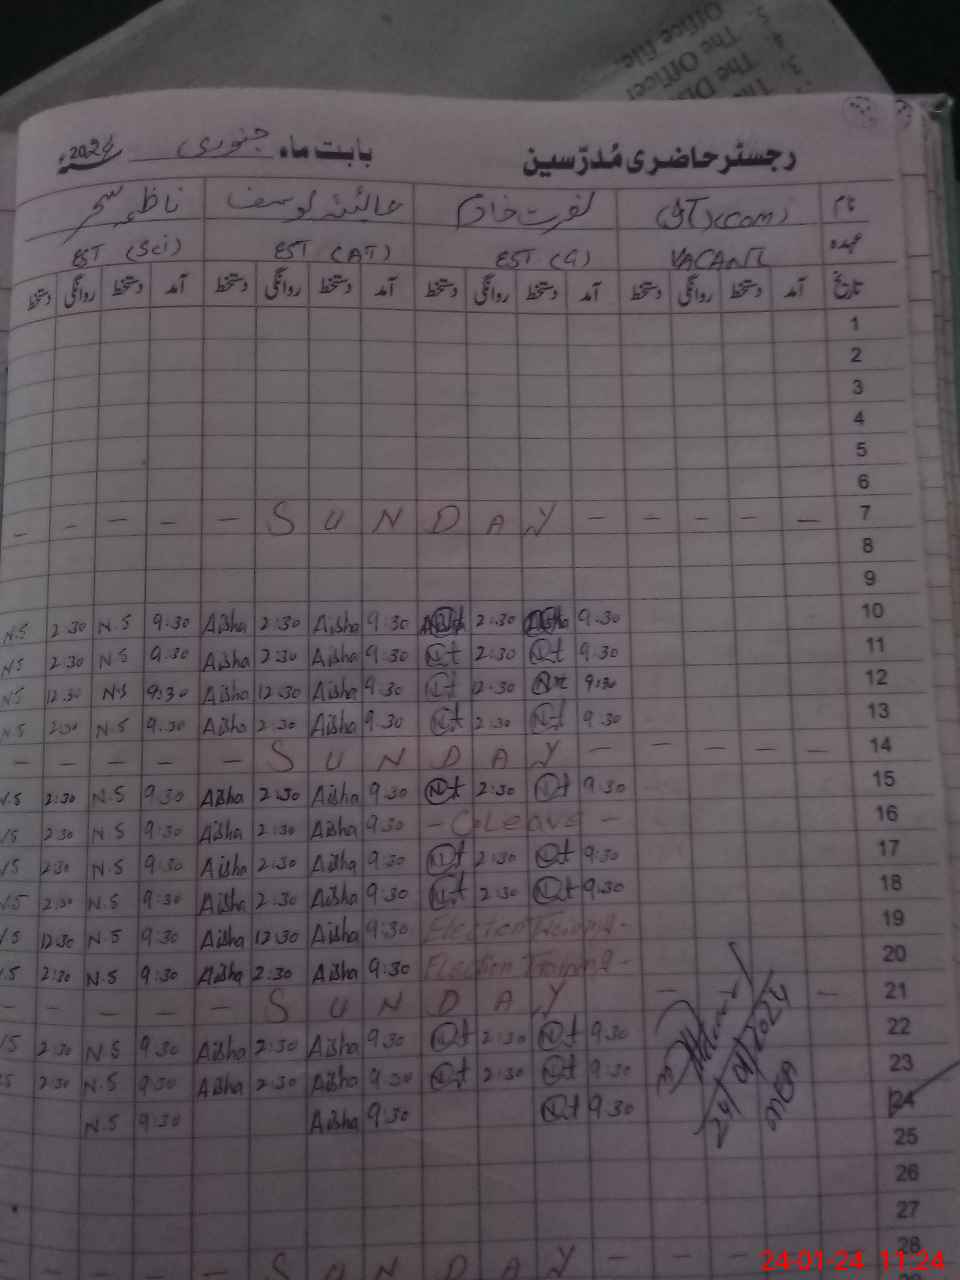 Office File.
The Officer
رجسٹر حاضری مُدرّسین بابت ماہ جنوری 2024ء
نام (IT)(com) نصرت خانم عائشہ یوسف ناظمہ سحر
عہدہ VACANT EST (G) EST (AT) EST (Sci)
تاریخ آمد دستخط روانگی دستخط آمد دستخط روانگی دستخط آمد دستخط روانگی دستخط آمد دستخط روانگی دستخط
1
2
3
4
5
6
- - - - - S U N D A Y - - - - - 7
8
9
N.S 2:30 N.S 9:30 Aisha 2:30 Aisha 9:30 2:30 9:30 10
N.S 2:30 N.S 9:30 Aisha 2:30 Aisha 9:30 2:30 9:30 11
N.S 12:30 N.S 9:30 Aisha 12:30 Aisha 9:30 12:30 9:30 12
N.S 2:30 N.S 9:30 Aisha 2:30 Aisha 9:30 2:30 9:30 13
- - - - - S U N D A Y - - - - - 14
N.S 2:30 N.S 9:30 Aisha 2:30 Aisha 9:30 2:30 9:30 15
N.S 2:30 N.S 9:30 Aisha 2:30 Aisha 9:30 - C.Leave - 16
N.S 2:30 N.S 9:30 Aisha 2:30 Aisha 9:30 2:30 9:30 17
N.S 2:30 N.S 9:30 Aisha 2:30 Aisha 9:30 2:30 9:30 18
N.S 12:30 N.S 9:30 Aisha 12:30 Aisha 9:30 Election Training - 19
N.S 2:30 N.S 9:30 Aisha 2:30 Aisha 9:30 Election Training - 20
- - - - - S U N D A Y - - 21
N.S 2:30 N.S 9:30 Aisha 2:30 Aisha 9:30 2:30 9:30 22
N.S 2:30 N.S 9:30 Aisha 2:30 Aisha 9:30 2:30 9:30 23
N.S 9:30 Aisha 9:30 9:30 24
24/01/2024
MEA
25
26
27
S U N D A Y - - - - 28
24-01-24 11:24